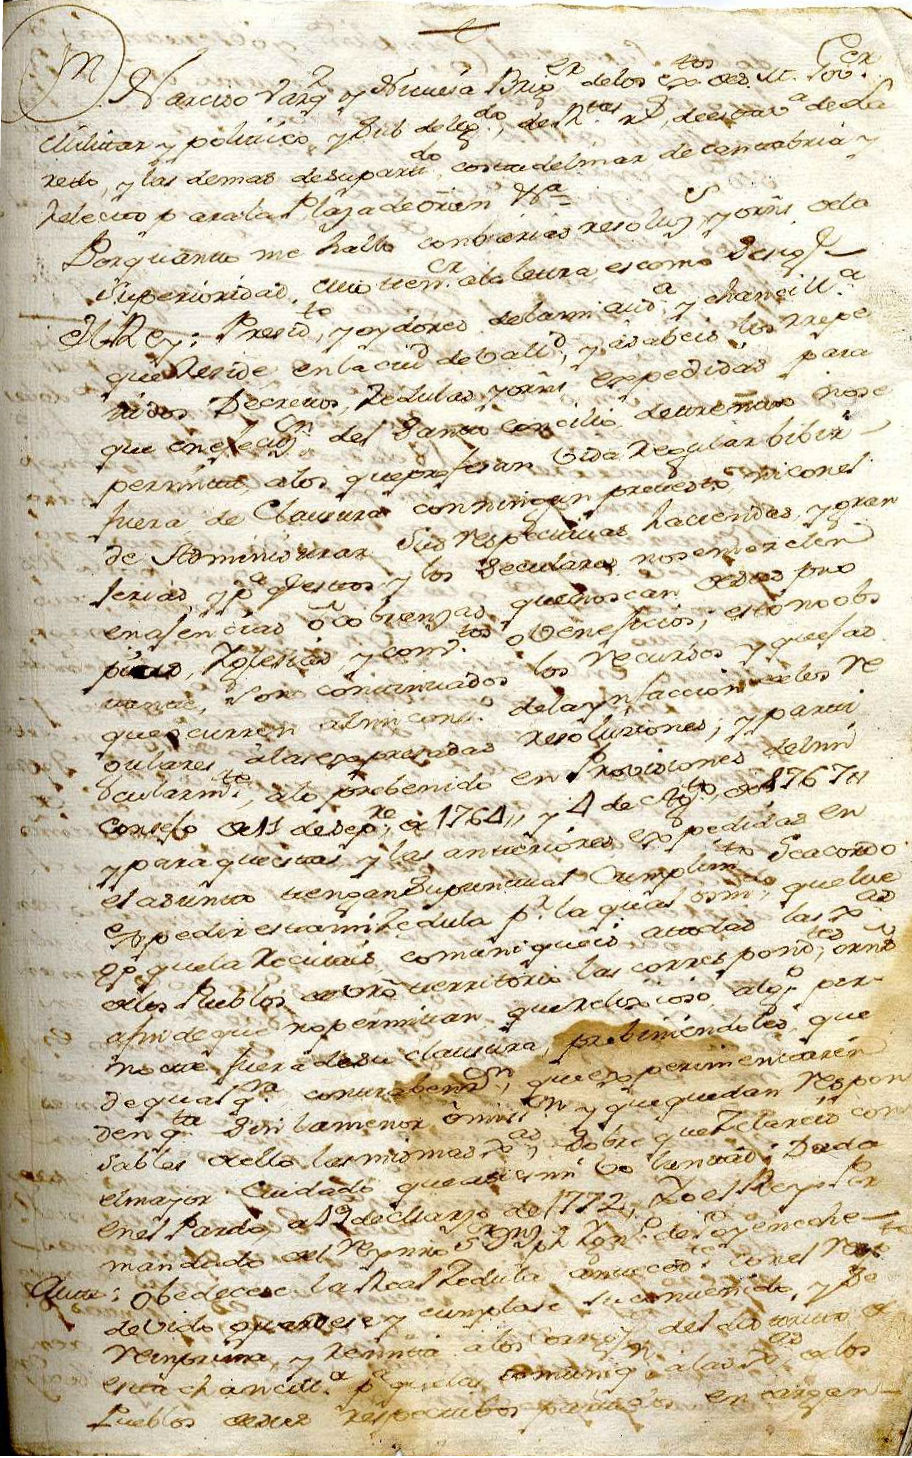 M
D.n Narciso Vazq.z y Nicuesa Brig.er de los ex.tos de S. M. Gov.or
Militar y politico, y Sub deleg.do, de R.tas R.s, de esta v.a de La
redo, y las demas de su part.do, costa del mar de Cantabria y
electo para la Plaza de Oran &.a
Por quanto me hallo con varias resoluz.s y orns. de la
Superioridad, cuio tien. a la letra es como se sig.e
El Rey: Presid.te, y oydores de la mi aud.a, y chancill.a
que reside en la ciud. de Vall.d, ya sabeis los repe
tidos Decretos, Zedulas, y orns. expedidas para
que en execuz.on del Santo Concilio de trento no se
permita, a los que profesan vida regular bibir
fuera de Clausura con ningun pretexto, ni con el
de Administrar sus respectivas haciendas, y gran
jerias, y p.a q.e estos y los seculares no se mezclen
en agencias o cobranzas, que no sean de sus pro
pias, Yglesias, y conv.tos o beneficios; esto no obs
tante, son continuados los recursos y quejas
que ocurren al mi cons.o de la ynfaccion de los re
gulares a las expresadas resoluziones; y parti
cularm.te, a lo prebenido en Provisiones del mi
consejo de 11 de sep.re de 1764,, y 4 de Ag.to de 1767,,
y para que estas, y las anteriores expedidas en
el asunto tengan su puntual Cumplim.to se acordo
expedir esta mi Zedula p.r la qual os m.do, que lue
go que la Reciuais comuniqueis a todas las Just.as
de los Pueblos de vro. territorio las correspond.tes orns.
a fin de que no permitan, que religioso alg.o per
nocte fuera de su clausura, prebiniendoles, que
de qual q.ra contrabenz.on, que experimentaren
den q.ta sin la menor omis.on y que quedan respon
sables de ello las mismas Just.as, sobre que Zelareis con
el mayor Cuidado que asi es mi voluntad: Dada
en el Pardo, a 19 de Marzo de 1772,, Yo el Rey= Por
mandado del Rey nro S.or D.n Jph Ygn.o de Goyeneche=
Auto: Obedecese la Real Zedula antecedte con el resp.to
devido, guardese y cumplase su contenido, y se
reimprima, y remita a los Correg.s del distrito de
esta chancill.a p.a que las comuniq.n a las Just.as de los
Pueblos de sus respectibos partidos encargan